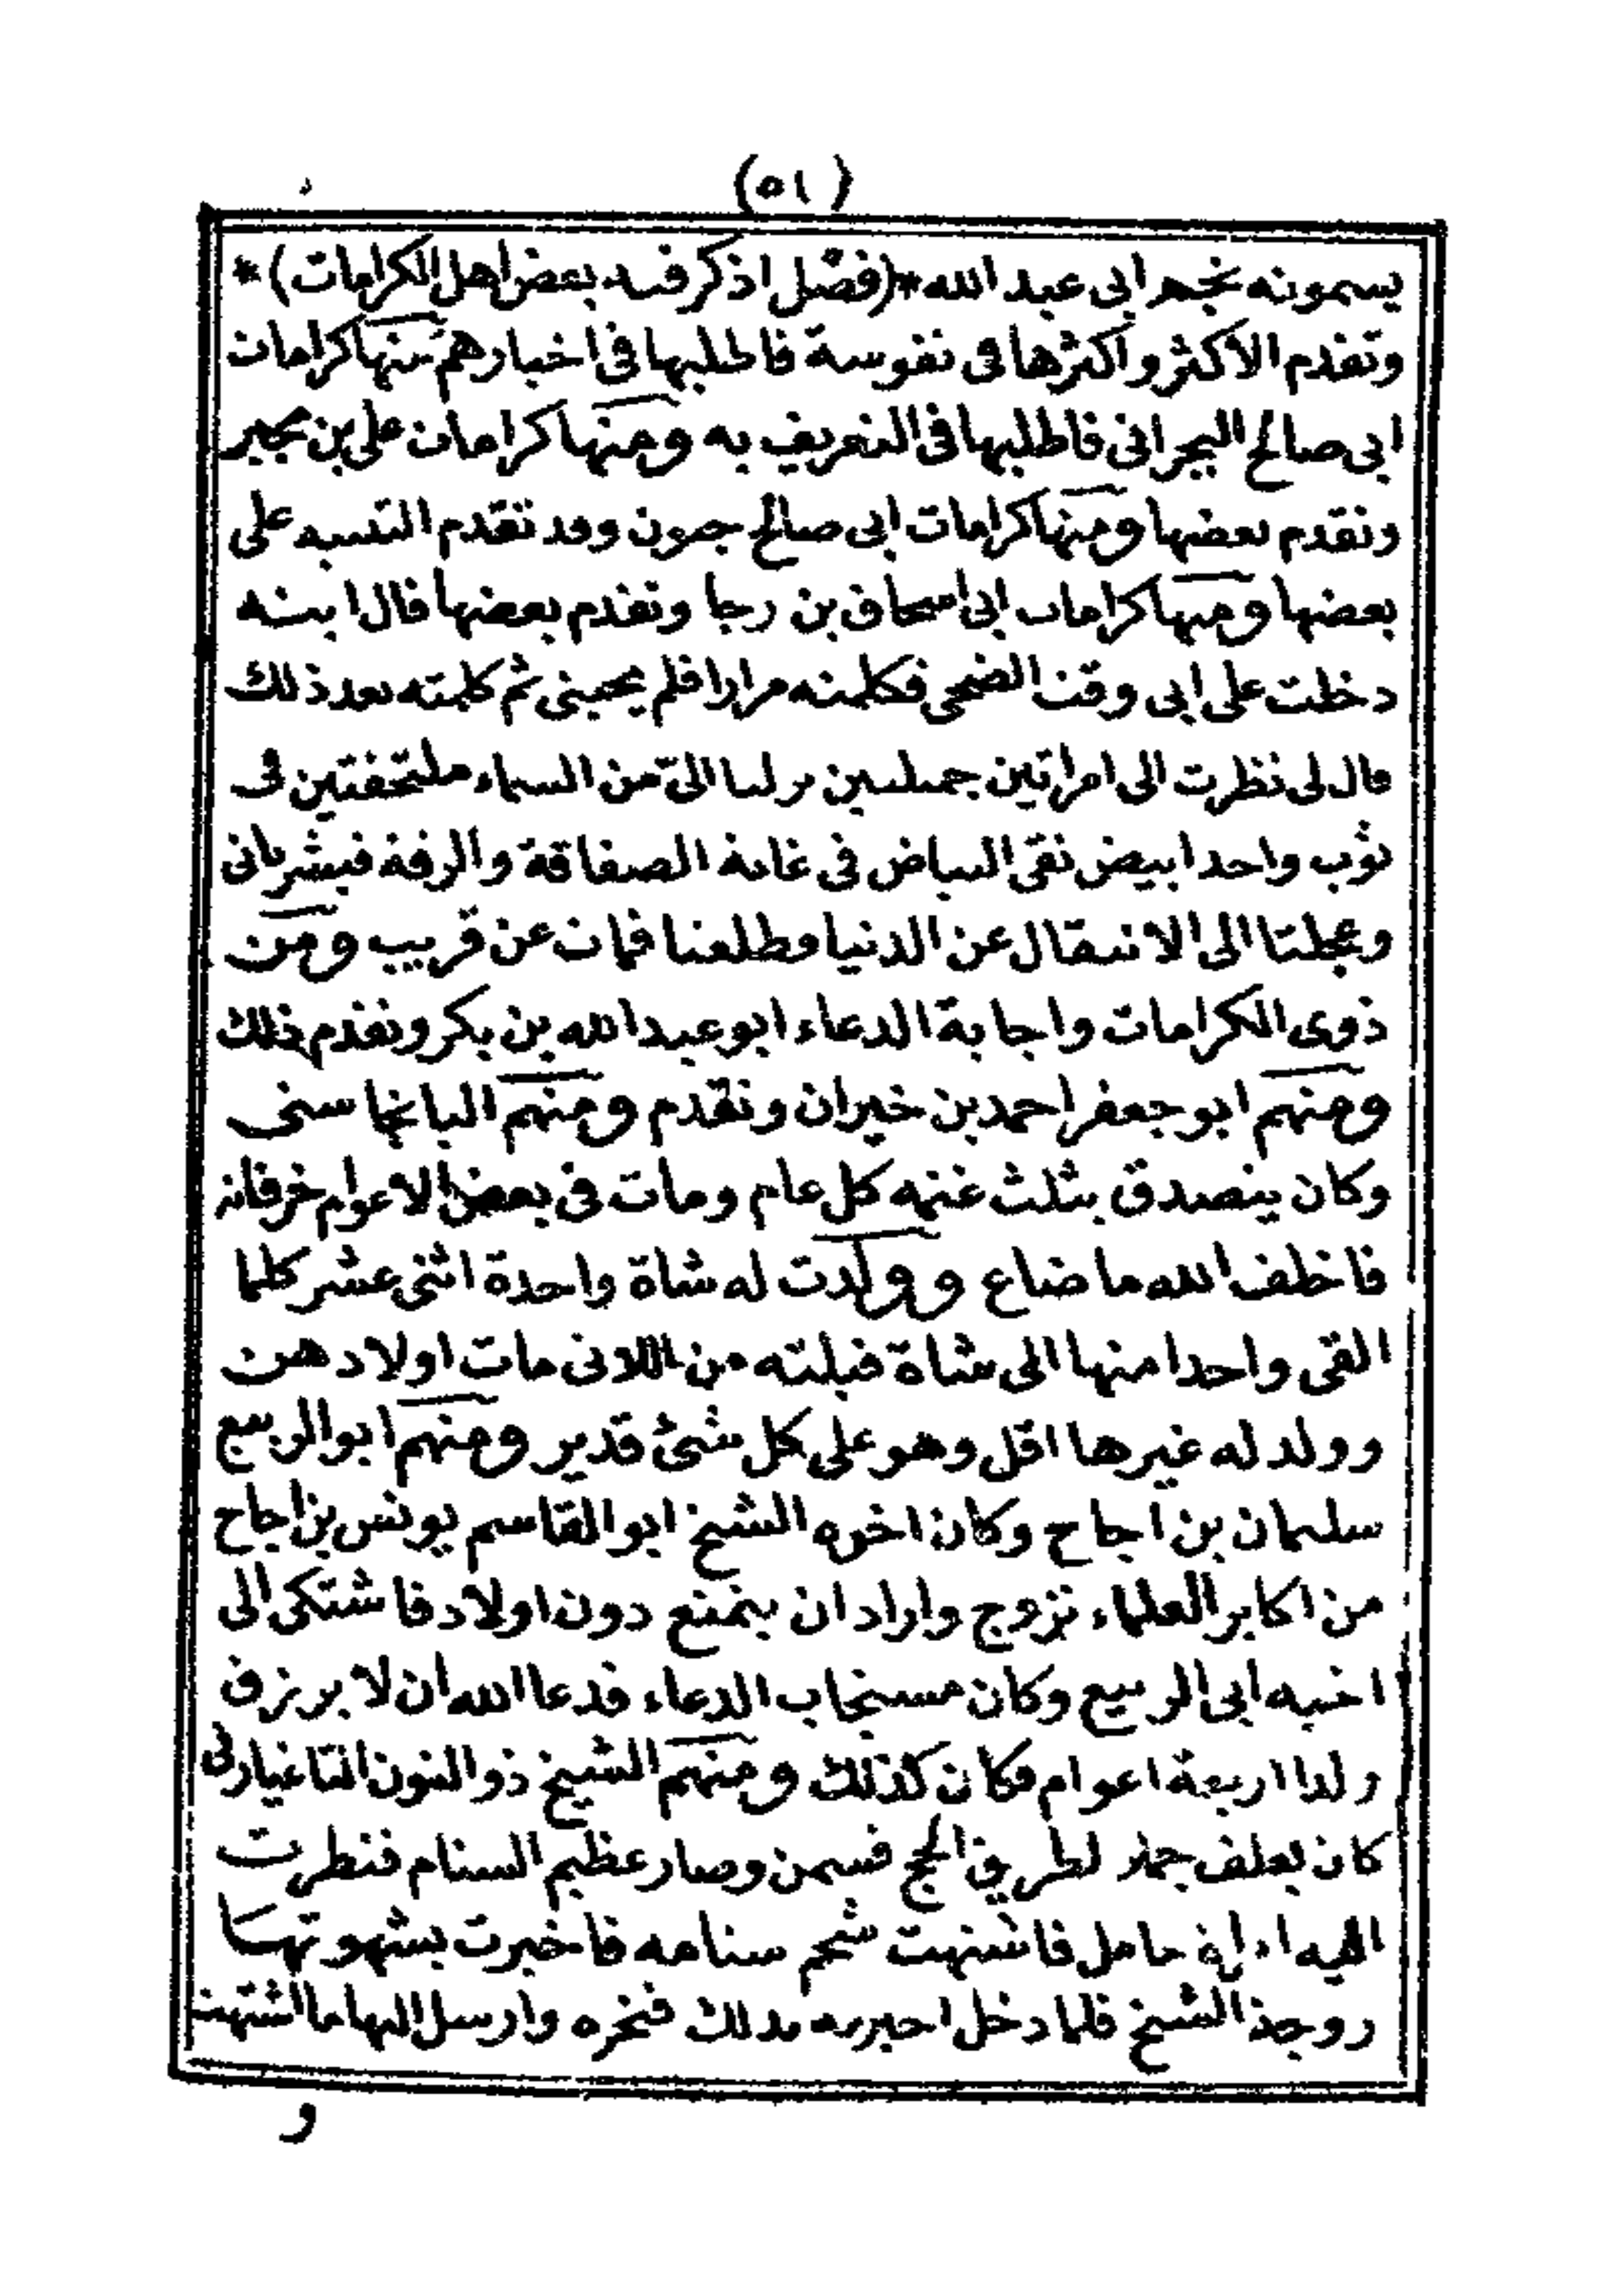 (٥١)
يسمونه نجم ابى عبد الله *(فصل اذكر فيه بعض اهل الكرامات)*
وتقدم الاكثر واكثرها فى نفوسة فاطلبها فى اخبارهم منها كرامات
ابى صالح اليجرانى فاطلبها فى التعريف به ومنها كرامات على بن بجير
وتقدم بعضها ومنها كرامات ابى صالح جنون وقد تقدم التنبيه على
بعضها ومنها كرامات ابى اسحاق بن رجا وتقدم بعضها قال ابنه
دخلت على ابى وقت الضحى فكلمته مرارا فلم يجبنى ثم كلمته بعد ذلك
قال لى نظرت الى امراتين جميلتين نزلتا الىّ من السماء ملتحفتين فى
ثوب واحد ابيض نقى البياض فى غاية الصفاقة والرقة فبشرتانى
وعجلتا الى الانتقال عن الدنيا وطلعتا فمات عن قريب ومن
ذوى الكرامات واجابة الدعاء ابو عبد الله بن بكر وتقدم ذلك
ومنهم ابو جعفر احمد بن خيران وتقدم ومنهم الباغاسنى
وكان يتصدق بثلث غنمه كل عام ومات فى بعض الاعوام خرفانه
فاخلف الله ما ضاع وولدت له شاة واحدة اثنى عشر كلما
القى واحدا منها الى شاة قبلته من اللاتى مات اولادهن
وولد له غيرها اقل وهو على كل شئ قدير ومنهم ابو الربيع
سليمان بن اجاح وكان اخوه الشيخ ابو القاسم يونس بن اجاح
من اكابر العلماء تزوج واراد ان يتمتع دون اولاد فاشتكى الى
اخيه ابى الربيع وكان مستجاب الدعاء فدعا الله ان لا يرزق
ولدا اربعة اعوام فكان كذلك ومنهم الشيخ ذو النون التاغيارتى
كان يعلف جملا لطريق الحج فسمن وصار عظيم السنام فنظرت
اليه امراة حامل فاشتهت شحم سنامه فاخبرت بشهوتها
زوجة الشيخ فلما دخل اخبرته بذلك فنحره وارسل اليها ما اشتهت
و